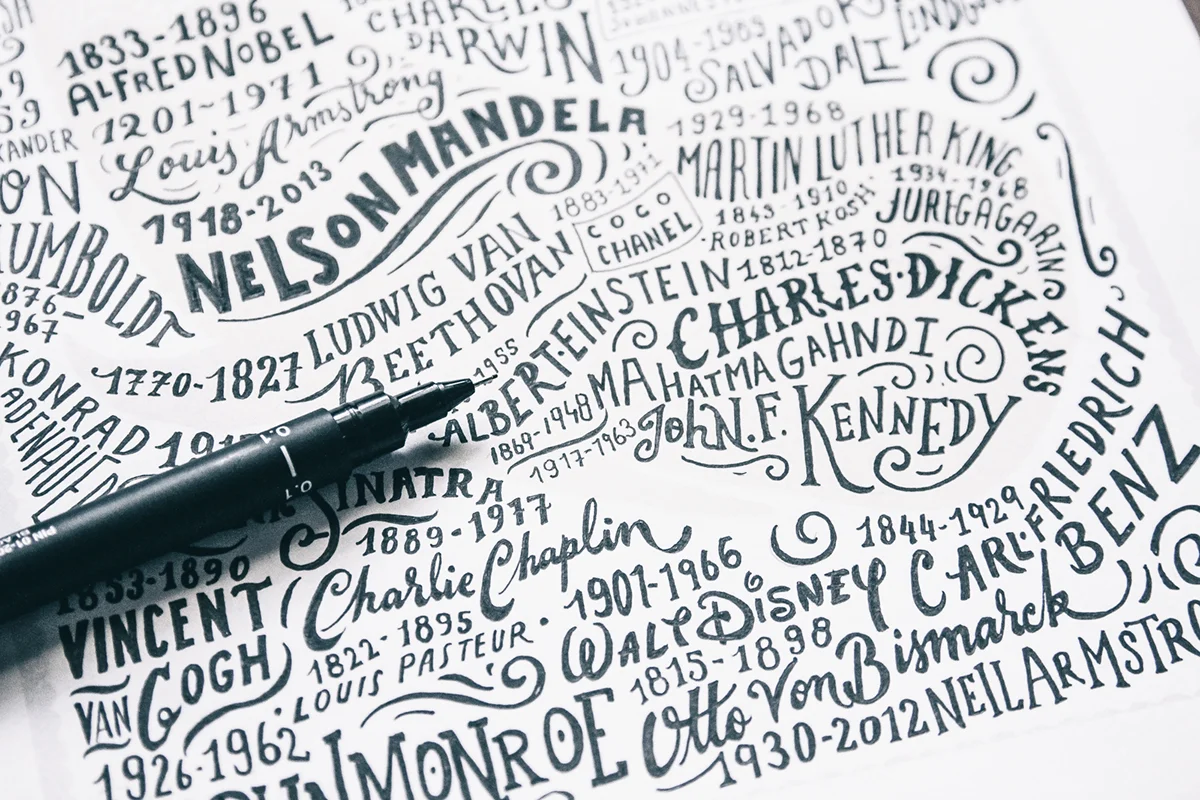 1833-1896
ALFRED NOBEL
1201-1971
Louis Armstrong
CHARLES
DARWIN
1904-1989
SALVADOR
DALI
1918-2013
NELSON MANDELA
1929-1968
MARTIN LUTHER KING
1934-1968
JURI GAGARIN
1843-1910
ROBERT KOSH
1883-1971
COCO
CHANEL
HUMBOLDT
1876-
1967
KONRAD
ADENAUER
1770-1827
LUDWIG VAN
BEETHOVAN
1955
ALBERT·EINSTEIN
1812-1870
CHARLES·DICKENS
1869-1948
MAHATMA GAHNDI
1917-1963
JOHN F. KENNEDY
SINATRA
1889-1977
Charlie Chaplin
1853-1890
VINCENT
VAN GOGH
1822-1895
·LOUIS PASTEUR·
1901-1966
WALT DISNEY
1844-1929
CARL·FRIEDRICH
BENZ
1815-1898
Otto von Bismarck
1926-1962
MONROE
1930-2012 NEIL ARMSTRO
0.1
0.1